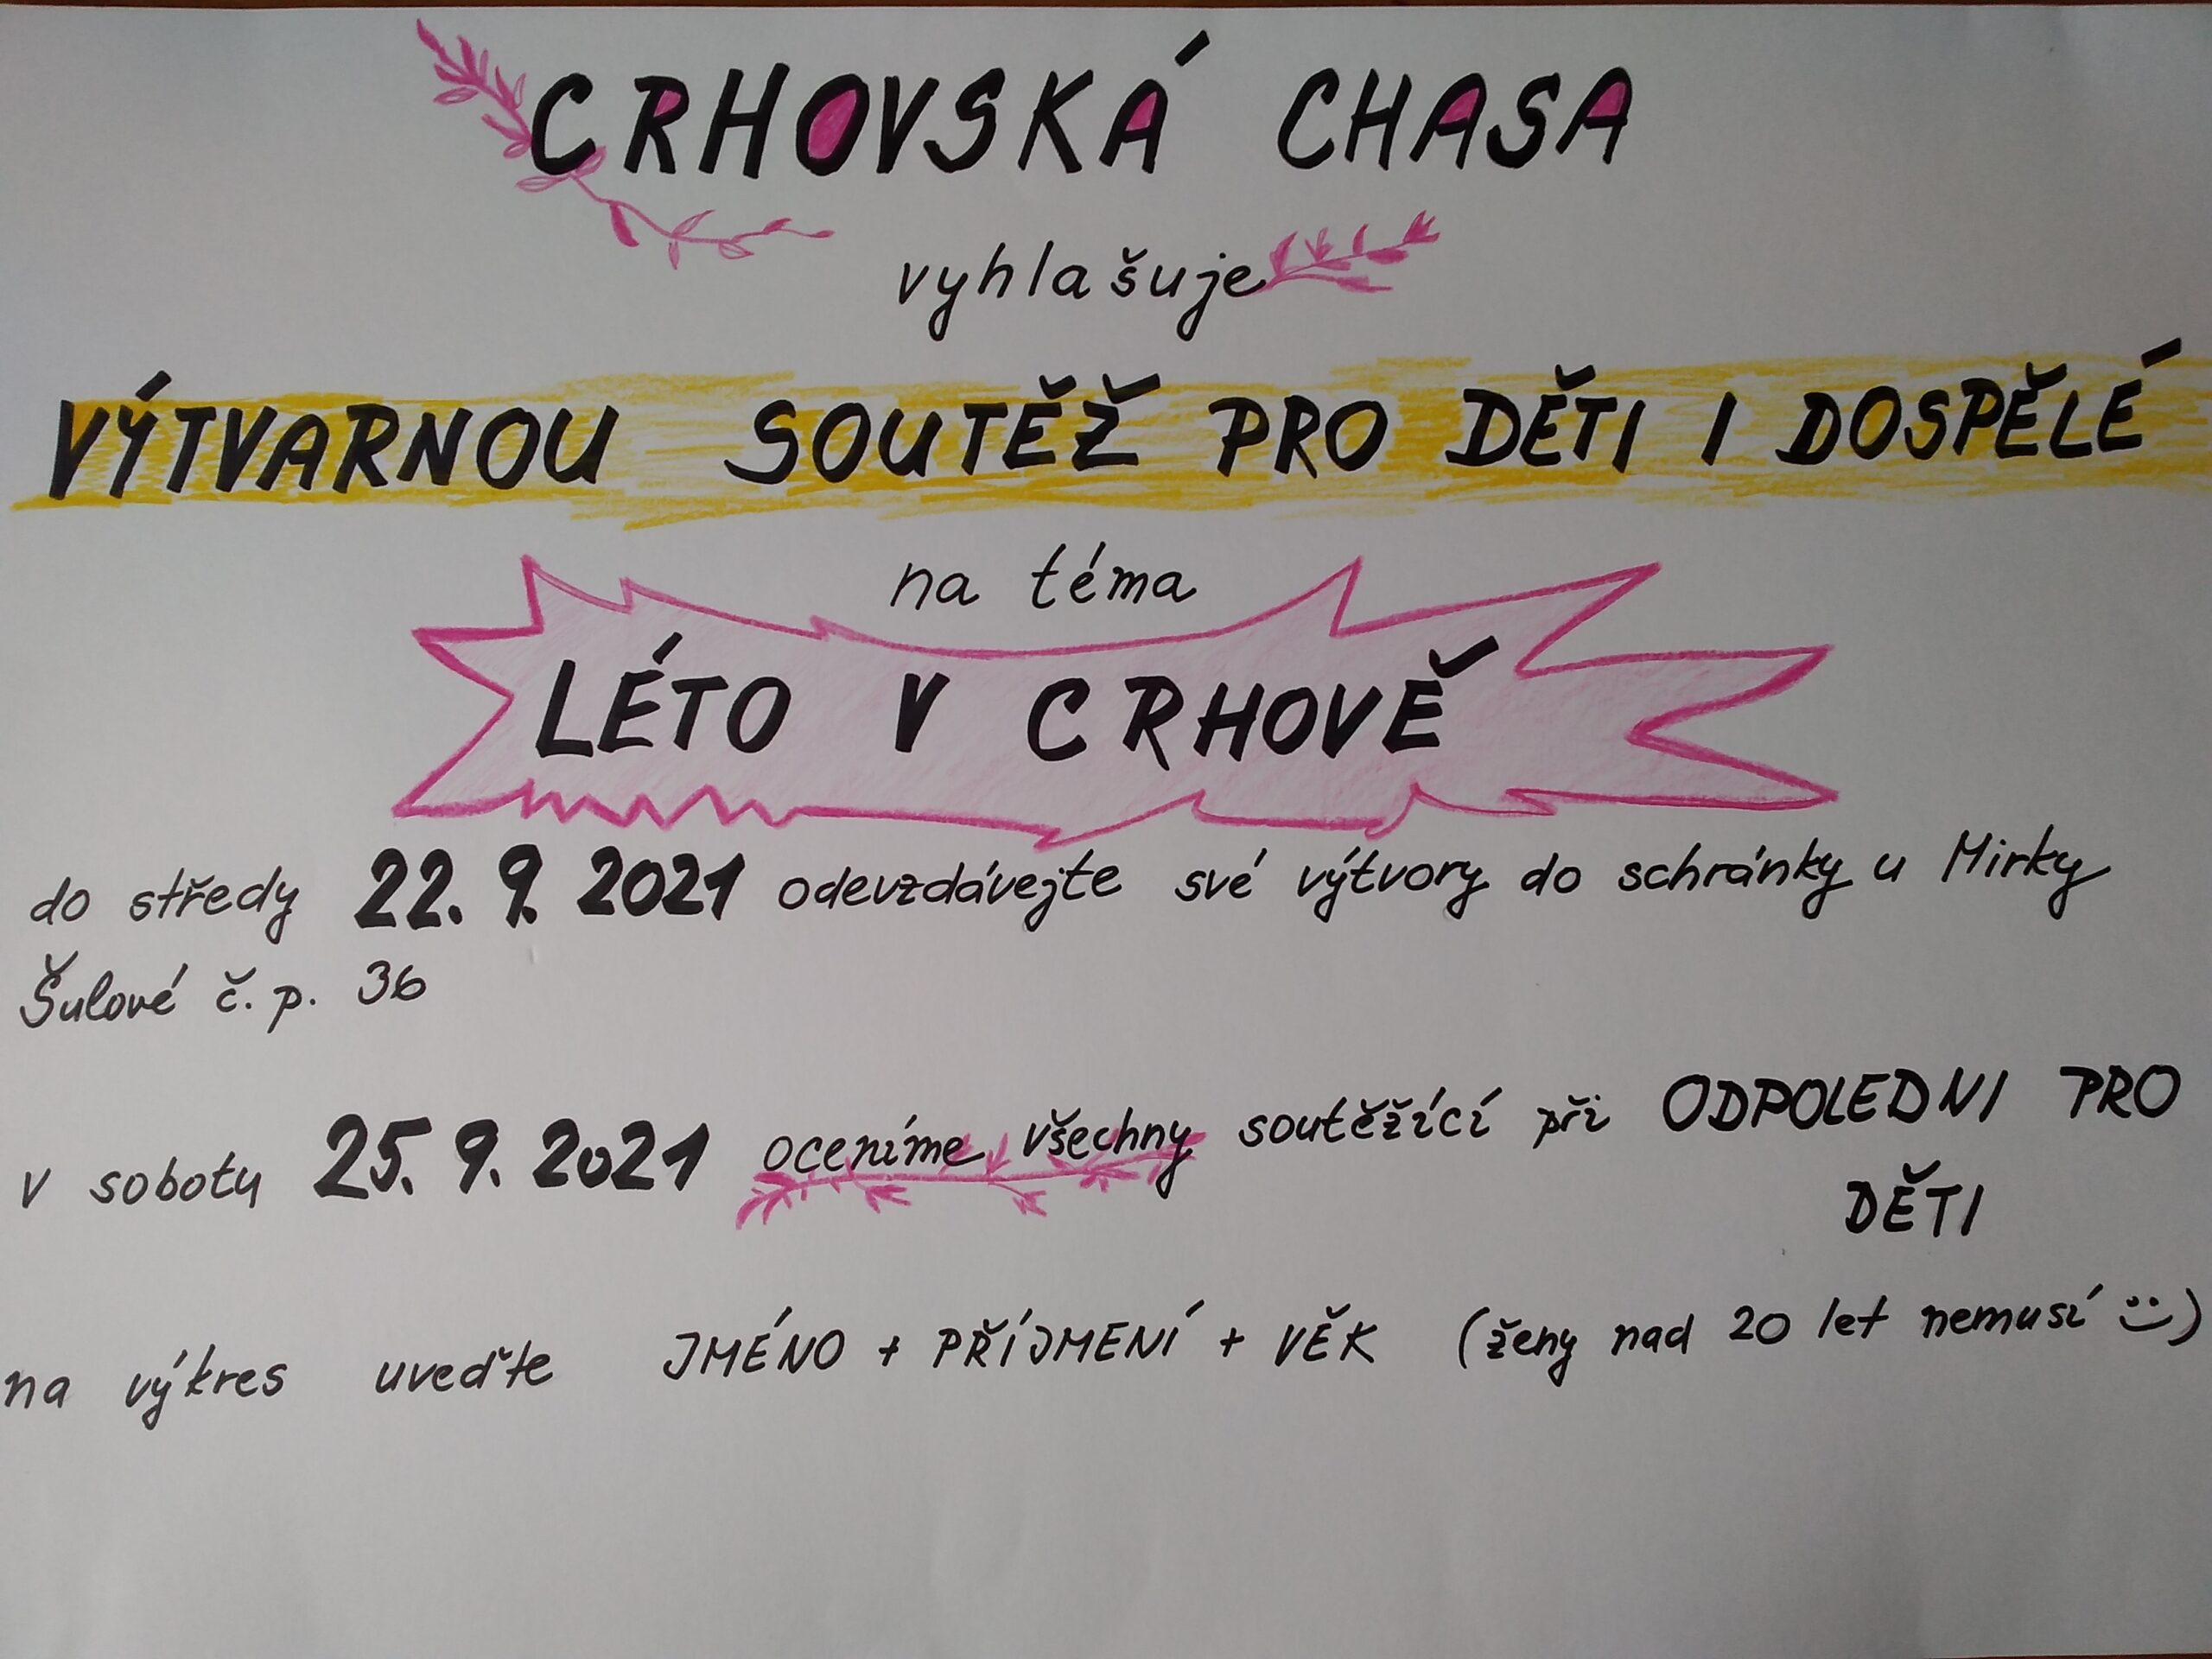 CRHOVSKÁ CHASA
vyhlašuje
VÝTVARNOU SOUTĚŽ PRO DĚTI I DOSPĚLÉ
na téma
LÉTO V CRHOVĚ
do středy 22. 9. 2021 odevzdávejte své výtvory do schránky u Mirky
Šulové č. p. 36
v sobotu 25. 9. 2021 oceníme všechny soutěžící při ODPOLEDNI PRO
DĚTI
na výkres uveďte JMÉNO + PŘÍJMENÍ + VĚK (ženy nad 20 let nemusí :))